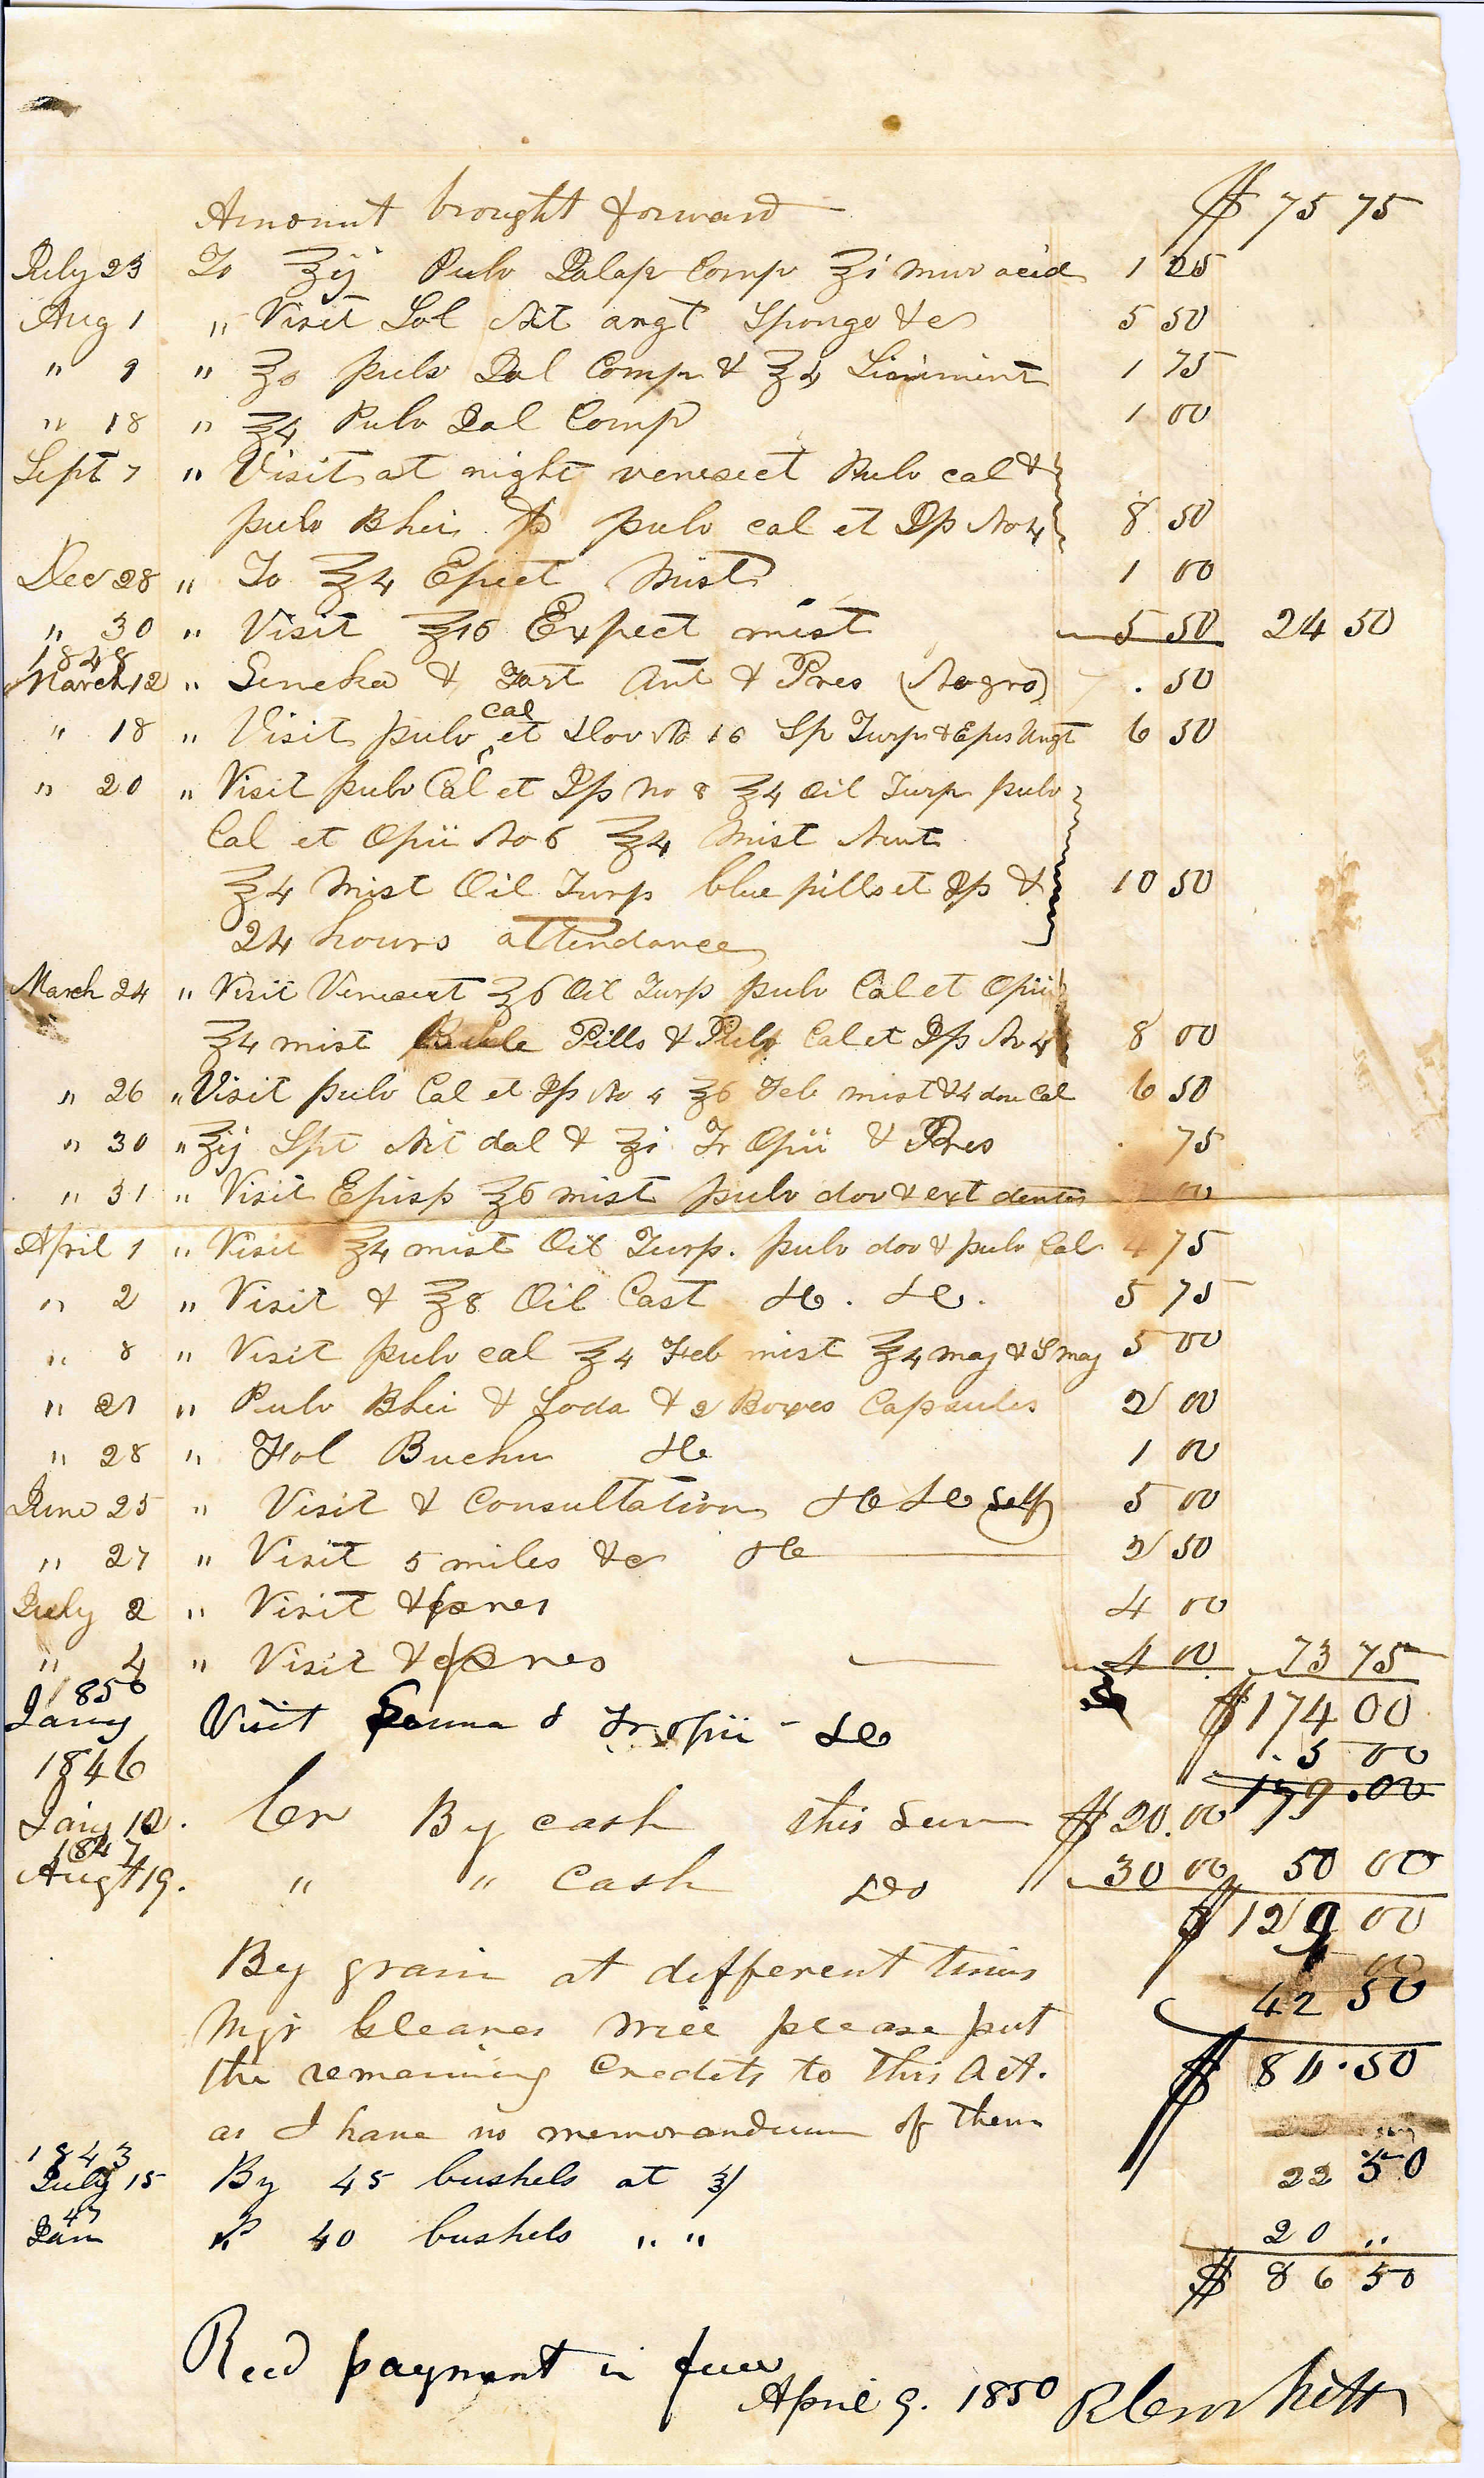 Amount brought forward $ 75 75
July 23 To ʒij Pulv Jalap Comp ʒi Mur acid 1 25
Aug 1 " Visit Sol Nit argt Sponge &c 5 50
" 9 " ʒ8 pulv Jal Comp & ʒ4 Liniment 1 75
" 18 " ʒ4 Pulv Jal Comp 1 00
Sept 7 " Visit at night venesect Pulv cal &
pulv Rhei & pulv cal et Ip No 4 8 50
Dec 28 " To ʒ4 Expect Mist 1 00
" 30 " Visit ʒ16 Expect mist 5 50 24 50
1848
March 12 " Seneka & Tart Ant & Pres (Negro) . 50
cal
" 18 " Visit pulv et Dov No 16 Sp Turp & Epis Ungt 6 50
" 20 " Visit pulv Cal et Ip No 8 ʒ4 Oil Turp pulv
Cal et Opii No 6 ʒ4 Mist
ʒ4 Mist Oil Turp blue pills et Ip &  10 50
24 hours attendance
March 24 " Visit Venesect ʒ6 Oil Turp pulv Cal et Opii
ʒ4 mist Pills & Pulv Cal et Ip No 4 8 00
" 26 " Visit pulv Cal et Ip No 4 ʒ6 Feb mist & 4 dov Cal 6 50
" 30 " ʒij Spt Nit dul & ʒi Tr Opii & Pres 75
" 31 " Visit Episp ʒ6 mist pulv dov & ext dentes 00
April 1 " Visit ʒ4 mist Oil Turp. pulv dov & pulv Cal 4 75
" 2 " Visit & ʒ8 Oil Cast 5 75
" 8 " Visit pulv cal ʒ4 Feb mist ʒ4 mag & S mag 5 00
" 21 " Pulv Rhei & Soda & 2 Boxes Capsules 2 00
" 28 " Fol Buchu 1 00
June 25 " Visit & Consultation self 5 00
" 27 " Visit 5 miles &c 2 50
July 2 " Visit & pres 4 00
" 4 " Visit & pres 4 00 73 75
1850 $174 00
Jany Visit & Tr opii - 5 00
1846 179.00
Jany 12. Cr By cash this sum $20.00
1847
Augt 19. " " Cash do 30 00 50 00
$129 00
By grain at different times 42 50
Mjr Cleaner will please put
the remaining Credits to this Act. $ 86.50
as I have no memorandum of them
1843
July 15 By 45 bushels at 3/ 22 50
47
Jan " 40 bushels " " 20 "
$ 86 50
Recd payment in full
April 9. 1850 R Crockett